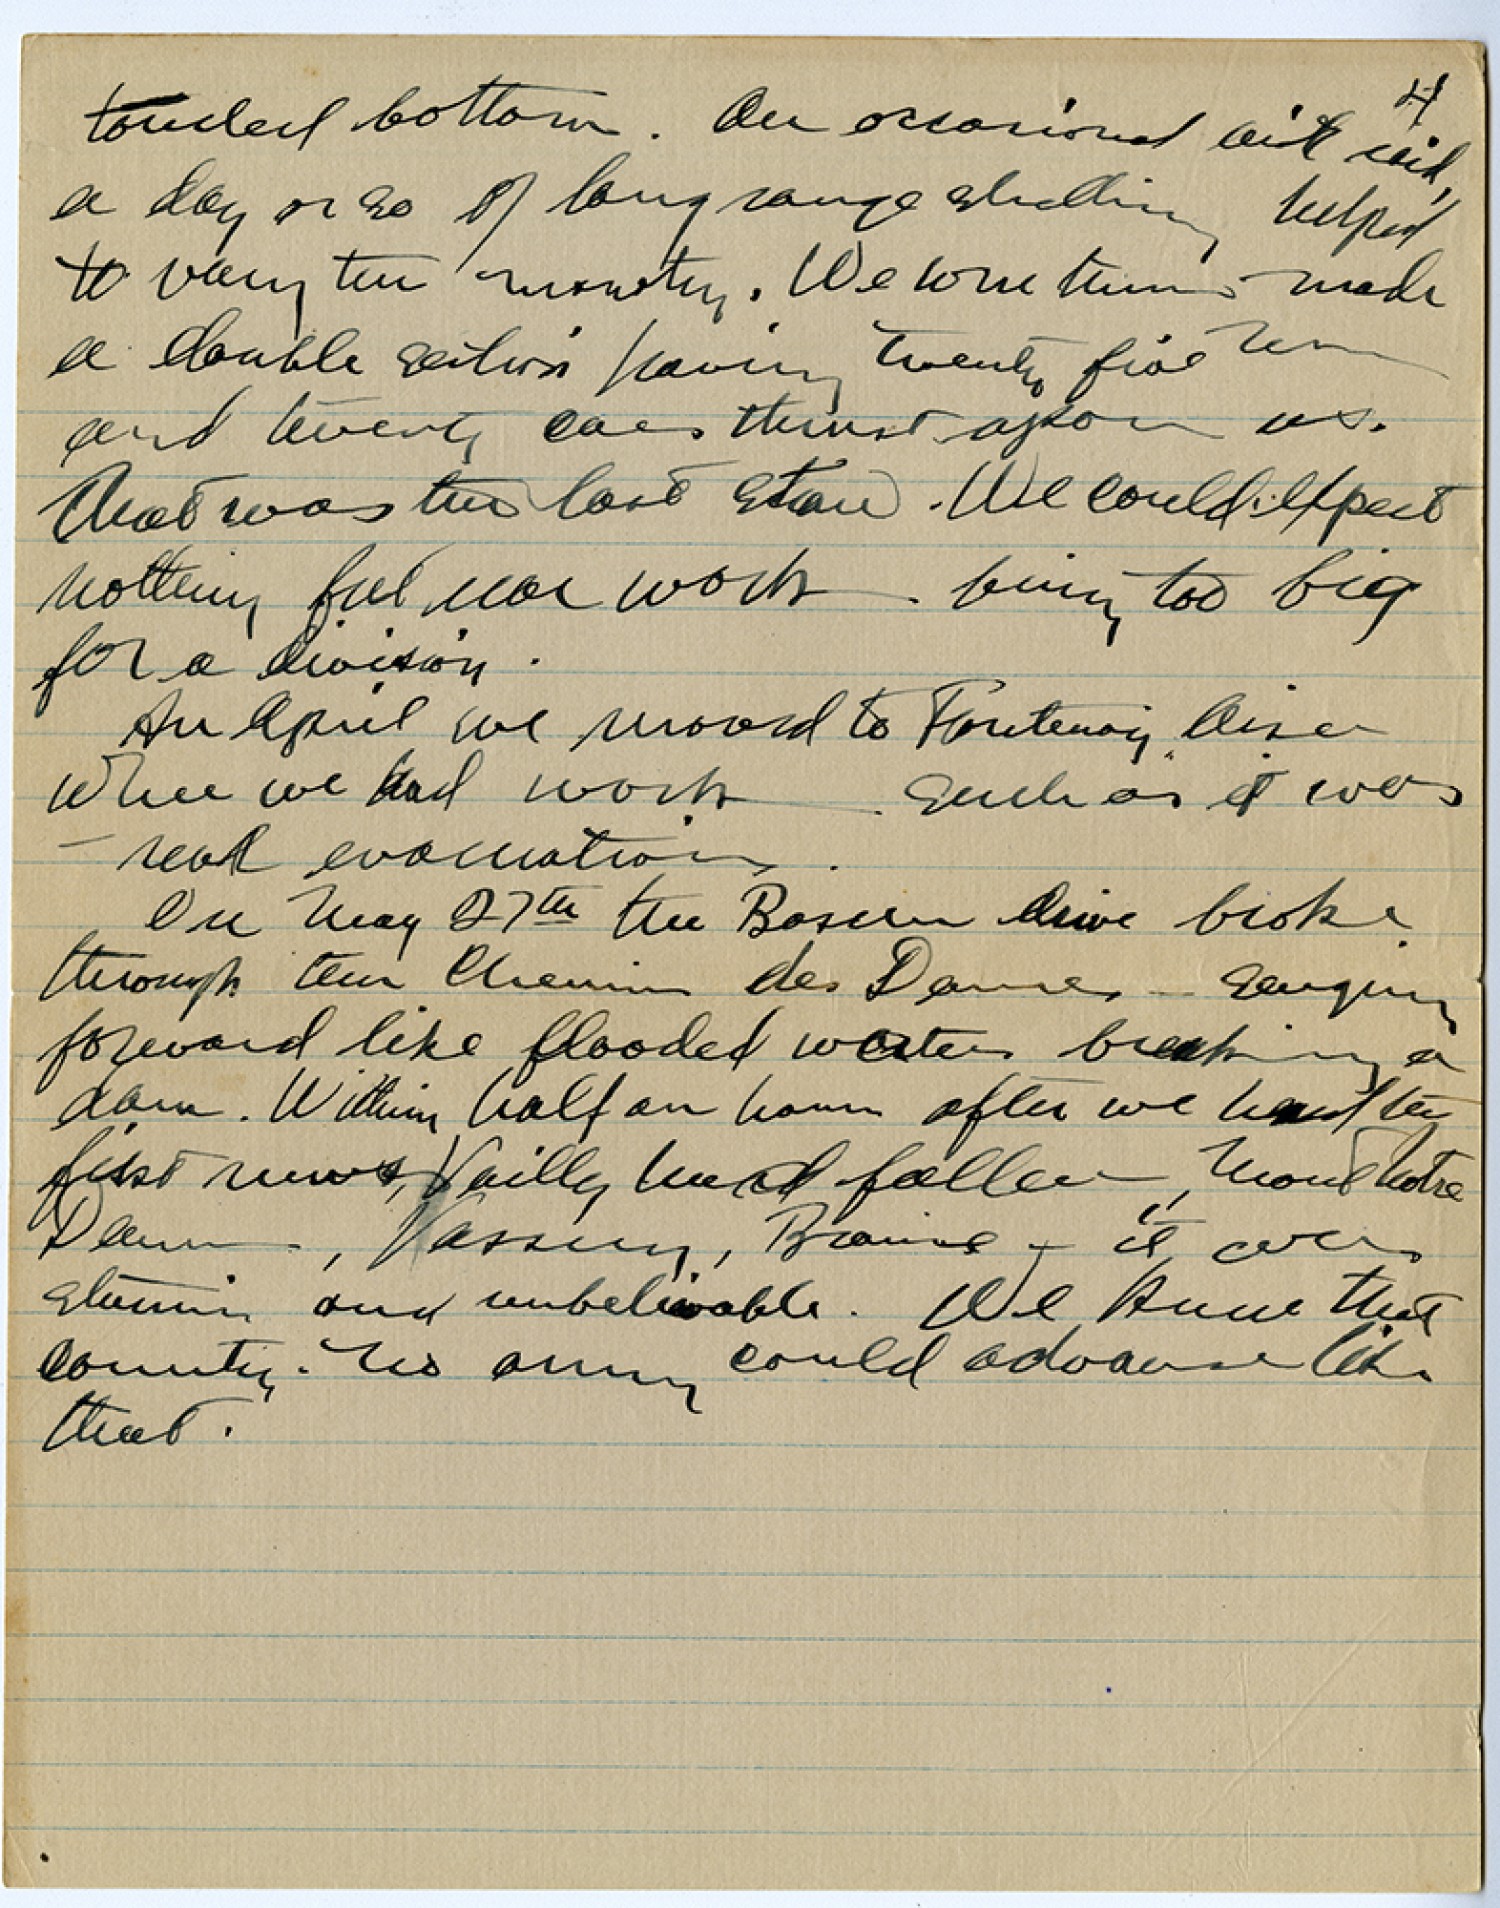 4
touched bottom. An occasional air raid,
a day or so of long range shelling helped
to vary the monotony. We were then made
a double section having twenty five men
and twenty cars thrust upon us.
That was the last straw. We could expect
nothing but evac work – being too big
for a division.
In April we moved to Fontenoy, Aisne
where we had work – such as it was
– rear evacuation.
On May 27th the Bosche drive broke
through the Chemin des Dames – surging
forward like flooded waters breaking a
dam. Within half an hour after we heard the
first news, Vailly had fallen, Mont Notre
Dame, Vasseny, Braine – it was
stunning and unbelievable. We knew that
country. No army could advance like
that.